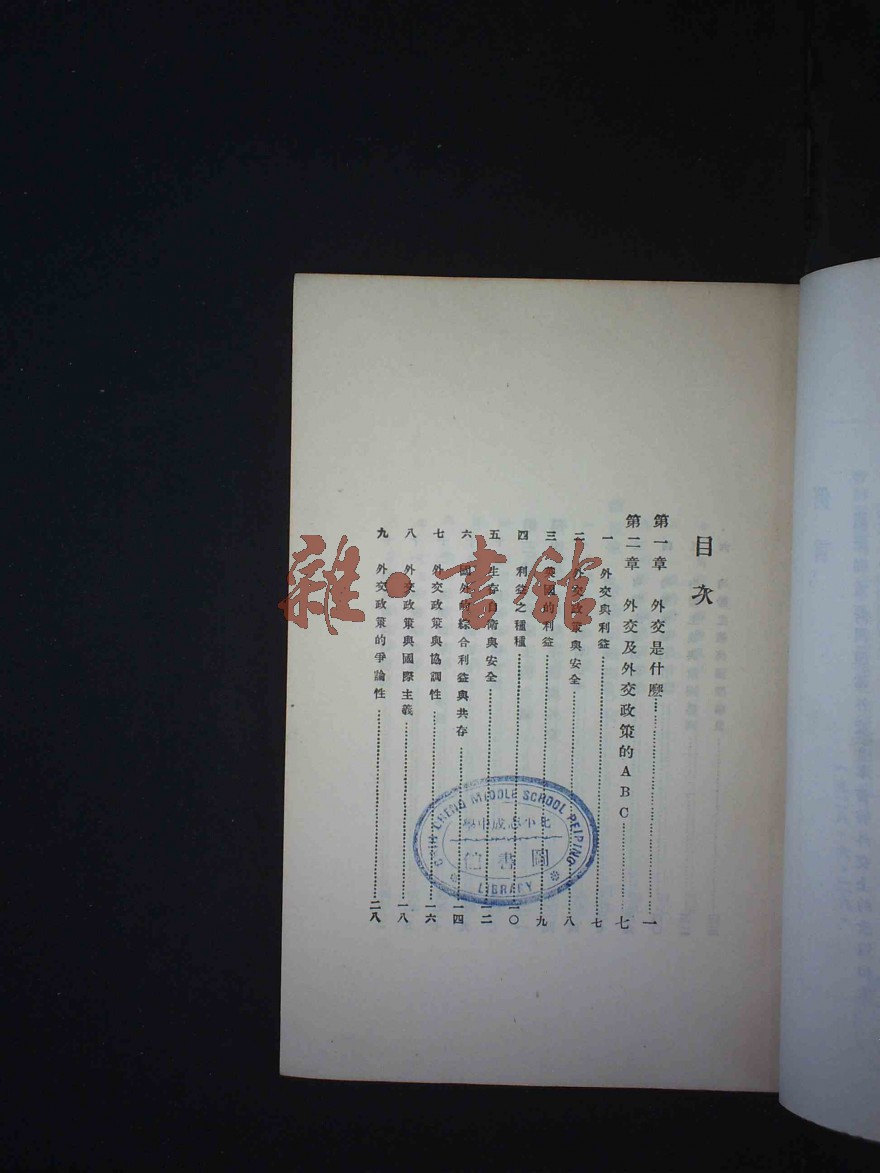 目次
第一章 外交是什麽 一
第二章 外交及外交政策的ABC 七
一 外交與利益 七
二 外交政策與安全 八
三 英國的利益 九
四 利益之種種 一〇
五 生存自衛與安全 一二
六 國外的綜合利益與共存 一四
七 外交政策與協調性 一六
八 外交政策與國際主義 一八
九 外交政策的爭論性 二八
雜·書館
CHIH CHENG MIDDLE SCHOOL PEIPING
北平志成中學
圖書館
LIBRARY